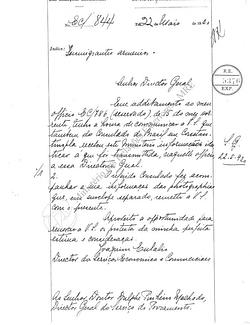 EC/844
22 Maio
Índice:
Immigrantes armenios.
R. E.
5376
EXP.
Senhor Director Geral,
Em additamento ao meu
officio EC/786, (reservado), de 15 do mez cor-
rente, tenho a honra de communicar a V. S. que
tambem do Consulado do Brasil em Constan-
tinopla, recebeu este Ministerio informações iden-
ticas á que foi transmittida, naquelle officio
a essa Directoria Geral.
2. O referido Consulado fez acom-
panhar a sua informação das photographias
que, em enveloppe separado, remetto a V. S.
com o presente.
Aproveito a opportunidade para
renovar a V. S. os protestos da minha perfeita
estima e consideração.
Joaquim Eulalio
Director dos Serviços Economicos e Commerciaes
Ao Senhor Doutor Dulphe Pinheiro Machado,
Director Geral do Serviço de Povoamento.